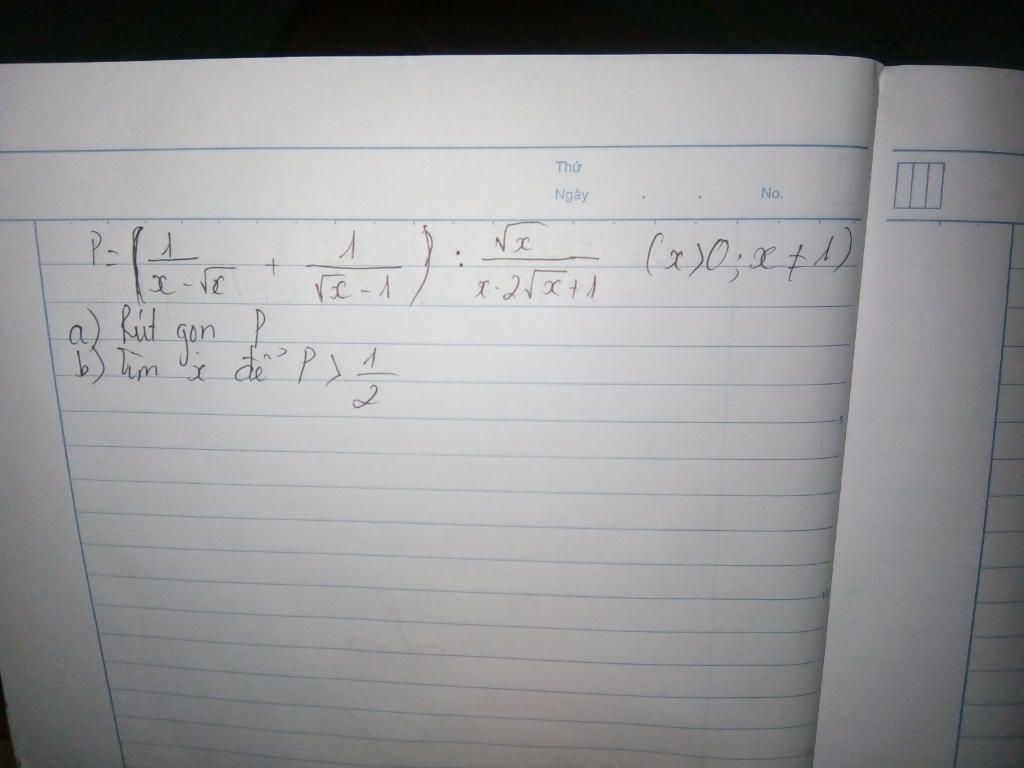 Thứ
Ngày . . No.
P = (1/(x - √x) + 1/(√x - 1)) : √x/(x - 2√x + 1) (x > 0; x ≠ 1)
a) Rút gọn P
b) Tìm x để P > 1/2